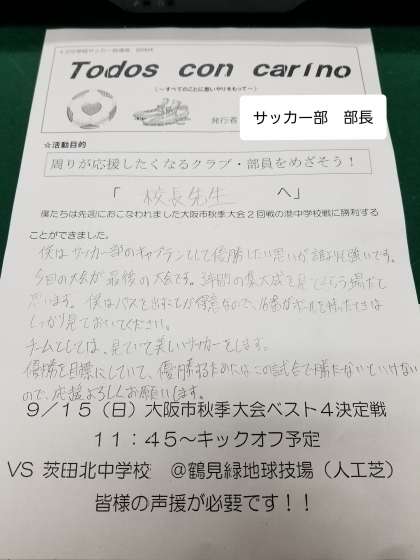 Todos con carino
（～すべてのことに思いやりをもって～）
発行者
サッカー部　部長
☆活動目的
周りが応援したくなるクラブ・部員をめざそう！
「 校長先生 へ」
僕たちは先週におこなわれました大阪市秋季大会２回戦の港中学校戦に勝利する
ことができました。
僕はサッカー部のキャプテンとして優勝したい思いが誰よりも強いです。
今回の大会が最後の大会です。3年間の集大成を見てもらう場だと
思います。僕はパスを出すことが得意なので、番がボールを持ったときは
しっかり見ておいてください。
チームとしては、見ていて美しいサッカーをします。
優勝を目標にしていて、優勝するためにはこの試合で勝たないといけない
ので、応援よろしくお願いします。
９／１５（日）大阪市秋季大会ベスト４決定戦
１１：４５～キックオフ予定
ＶＳ 茨田北中学校　＠鶴見緑地球技場（人工芝）
皆様の声援が必要です！！